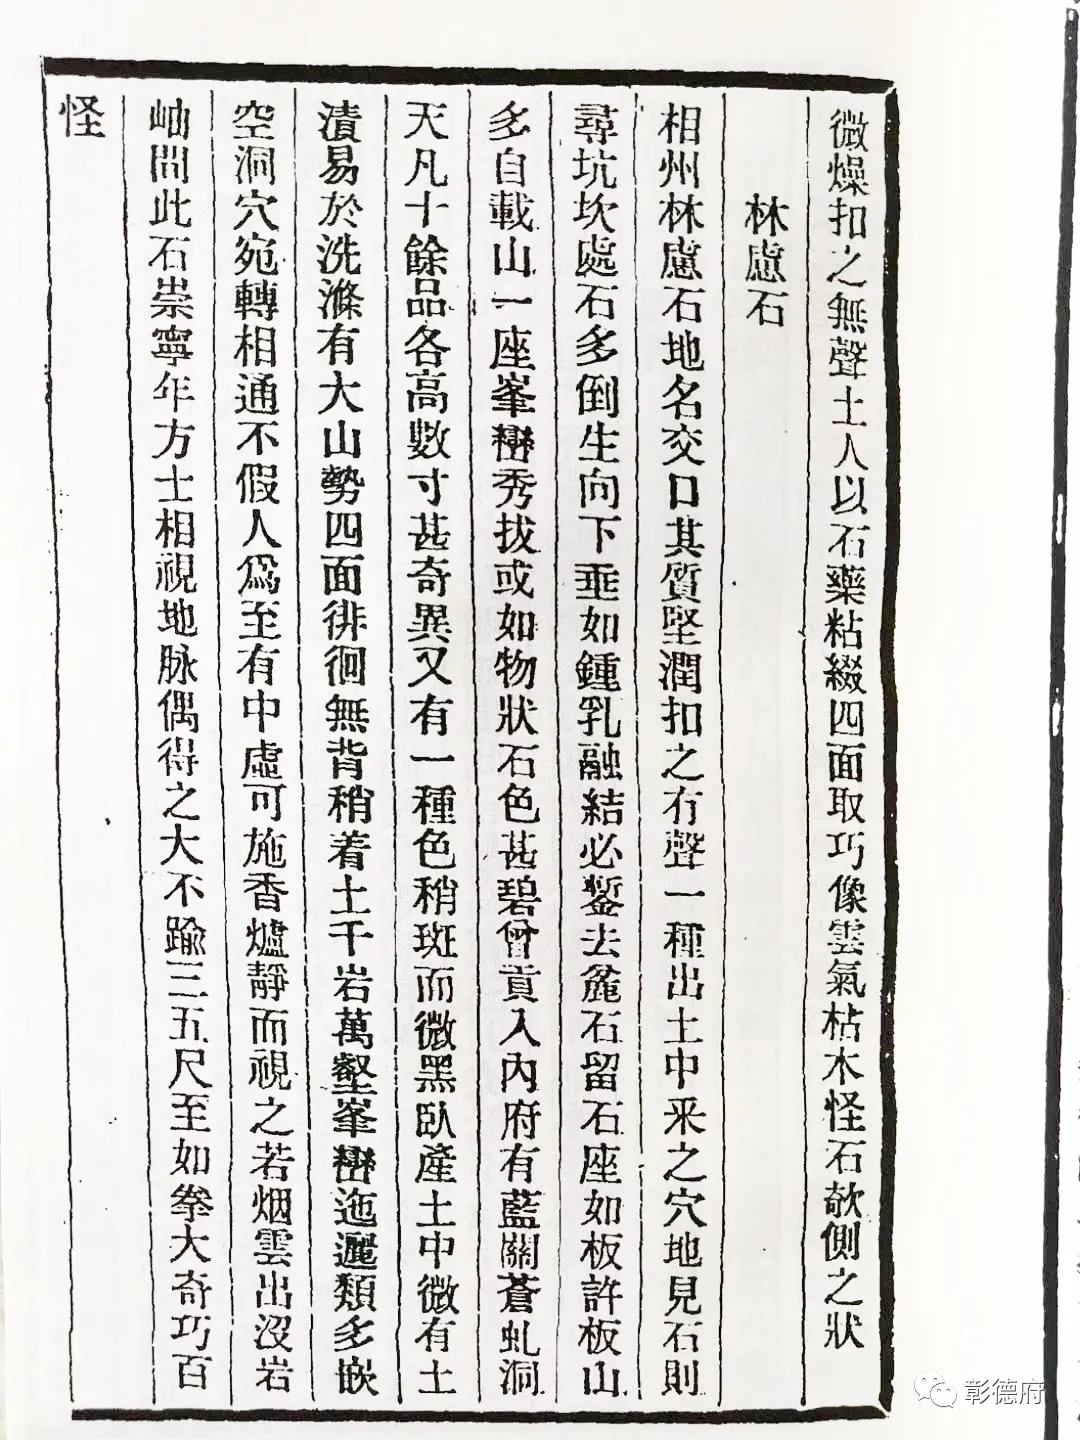 微燥扣之無聲土人以石藥粘綴四面取巧像雲氣枯木怪石欹側之狀
林慮石
相州林慮石地名交口其質堅潤扣之有聲一種出土中采之穴地見石則
尋坑坎處石多倒生向下垂如鍾乳融結必鏨去麄石留石座如板許板山
多自載山一座峯巒秀拔或如物狀石色甚碧曾貢入內府有藍關蒼虬洞
天凡十餘品各高數寸甚奇異又有一種色稍斑而微黑臥產土中微有土
漬易於洗滌有大山勢四面徘徊無背稍着土千岩萬壑峯巒迤邐類多嵌
空洞穴宛轉相通不假人爲至有中虛可施香爐靜而視之若烟雲出沒岩
岫間此石崇寧年方士相視地脉偶得之大不踰三五尺至如拳大奇巧百
怪
彰德府